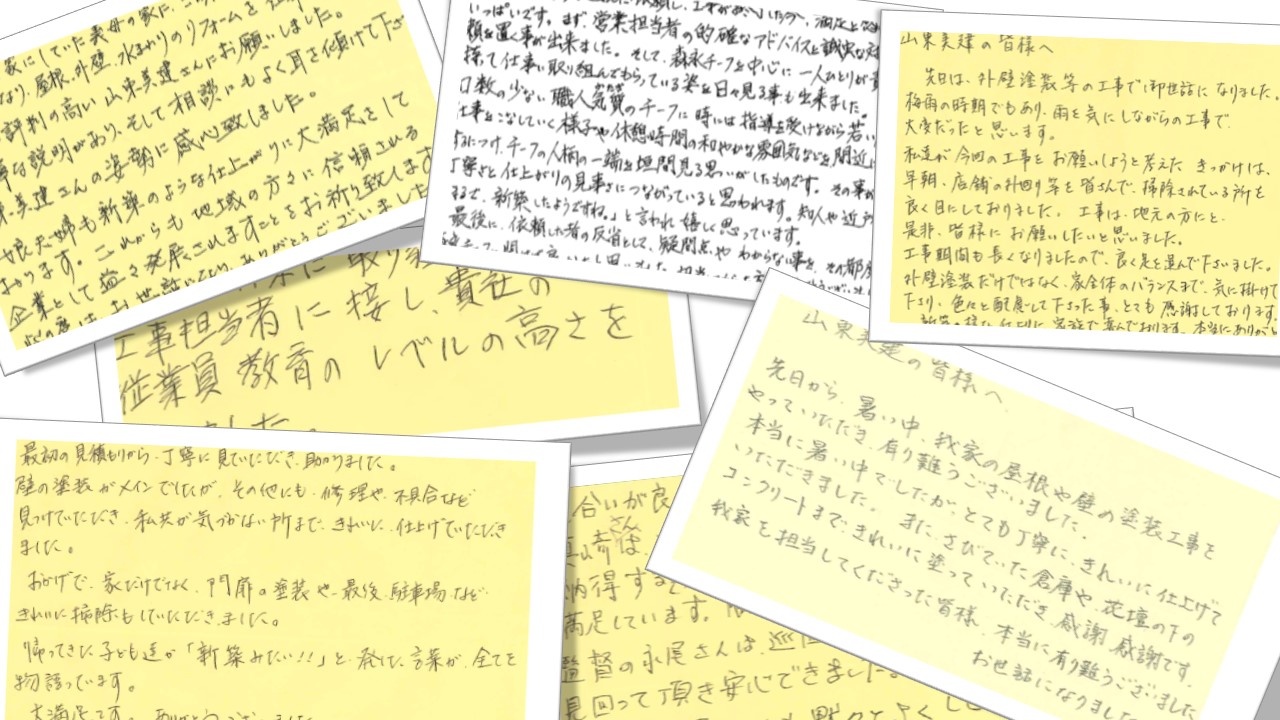 家にしていた義母の家に、こ
なり、屋根、外壁、水まわりのリフォームを
評判の高い山東美建さんにお願いしました。
な説明があり、そして相談にもよく耳を傾けて下さ
美建さんの姿勢に感心致しました。
娘夫婦も新築のような仕上がりに大満足をして
おります。これからも地域の方々に信頼される
企業として益々発展されますことをお祈り致します
この度はお世話になり、ありがとうございました
いっぱいです。まず、営業担当者の的確なアドバイスと誠実な対
頼を置く事が出来ました。そして、森永チーフを中心に一人ひとりが責
揮て仕事に取り組んでもらっている姿を日々見る事も出来ました。
口数の少ない職人気質のチーフに時には指導を受けながら若い
仕事をこなしていく様子や休憩時間の和やかな雰囲気などを間近に
するにつけ、チーフの人柄の一端を垣間見る思いがしたものです。その事が
丁寧さと仕上がりの見事さにつながっていると思われます。知人や近所
るで、新築したようですね。」と言われ嬉しく思っています。
最後に、依頼した者の反省として、疑問点やわからない事を、その都度
山東美建の皆様へ
先日は、外壁塗装等の工事で御世話になりました。
梅雨の時期でもあり、雨を気にしながらの工事で、
大変だったと思います。
私達が今回の工事をお願いしようと考えたきっかけは、
早朝、店舗の外回り等を皆さんで、掃除されている所を
良く目にしておりました。工事は、地元の方にと、
是非、皆様にお願いしたいと思いました。
工事期間も長くなりましたので、良く足を運んで下さいました。
外壁塗装だけではなく、家全体のバランスまで、気に掛けて
下さり、色々と配慮して下さった事、とても感謝しております。
新築の様な仕上りに家族で喜んでおります。本当にありがとう
工事担当者に接し、貴社の
従業員教育のレベルの高さを
ました。
山東美建の皆様へ
先日から、暑い中、我家の屋根や壁の塗装工事を
やっていただき、有り難うございました。
本当に暑い中でしたが、とても丁寧に、きれいに仕上げて
いただきました。また、さびていた倉庫や、花壇の下の
コンクリートまで、きれいに塗っていただき、感謝、感謝です。
我家を担当してくださった皆様、本当に有り難うございました
お世話になりました
最初の見積もりから、丁寧に見ていただき、助かりました。
壁の塗装がメインでしたが、その他にも、修理や、不具合など
見つけていただき、私共が気づかない所まで、きれいに、仕上げていただき
ました。
おかげで、家だけでなく、門扉の塗装や、最後、駐車場など
きれいに掃除もしていただきました。
帰ってきた子ども達が「新築みたい!!」と、発した言葉が、全てを
物語っています。
大満足です。ありがとうございました
合いが良
さん
は
納得する
満足しています。
監督の永尾さんは、巡回
見回って頂き安心できました